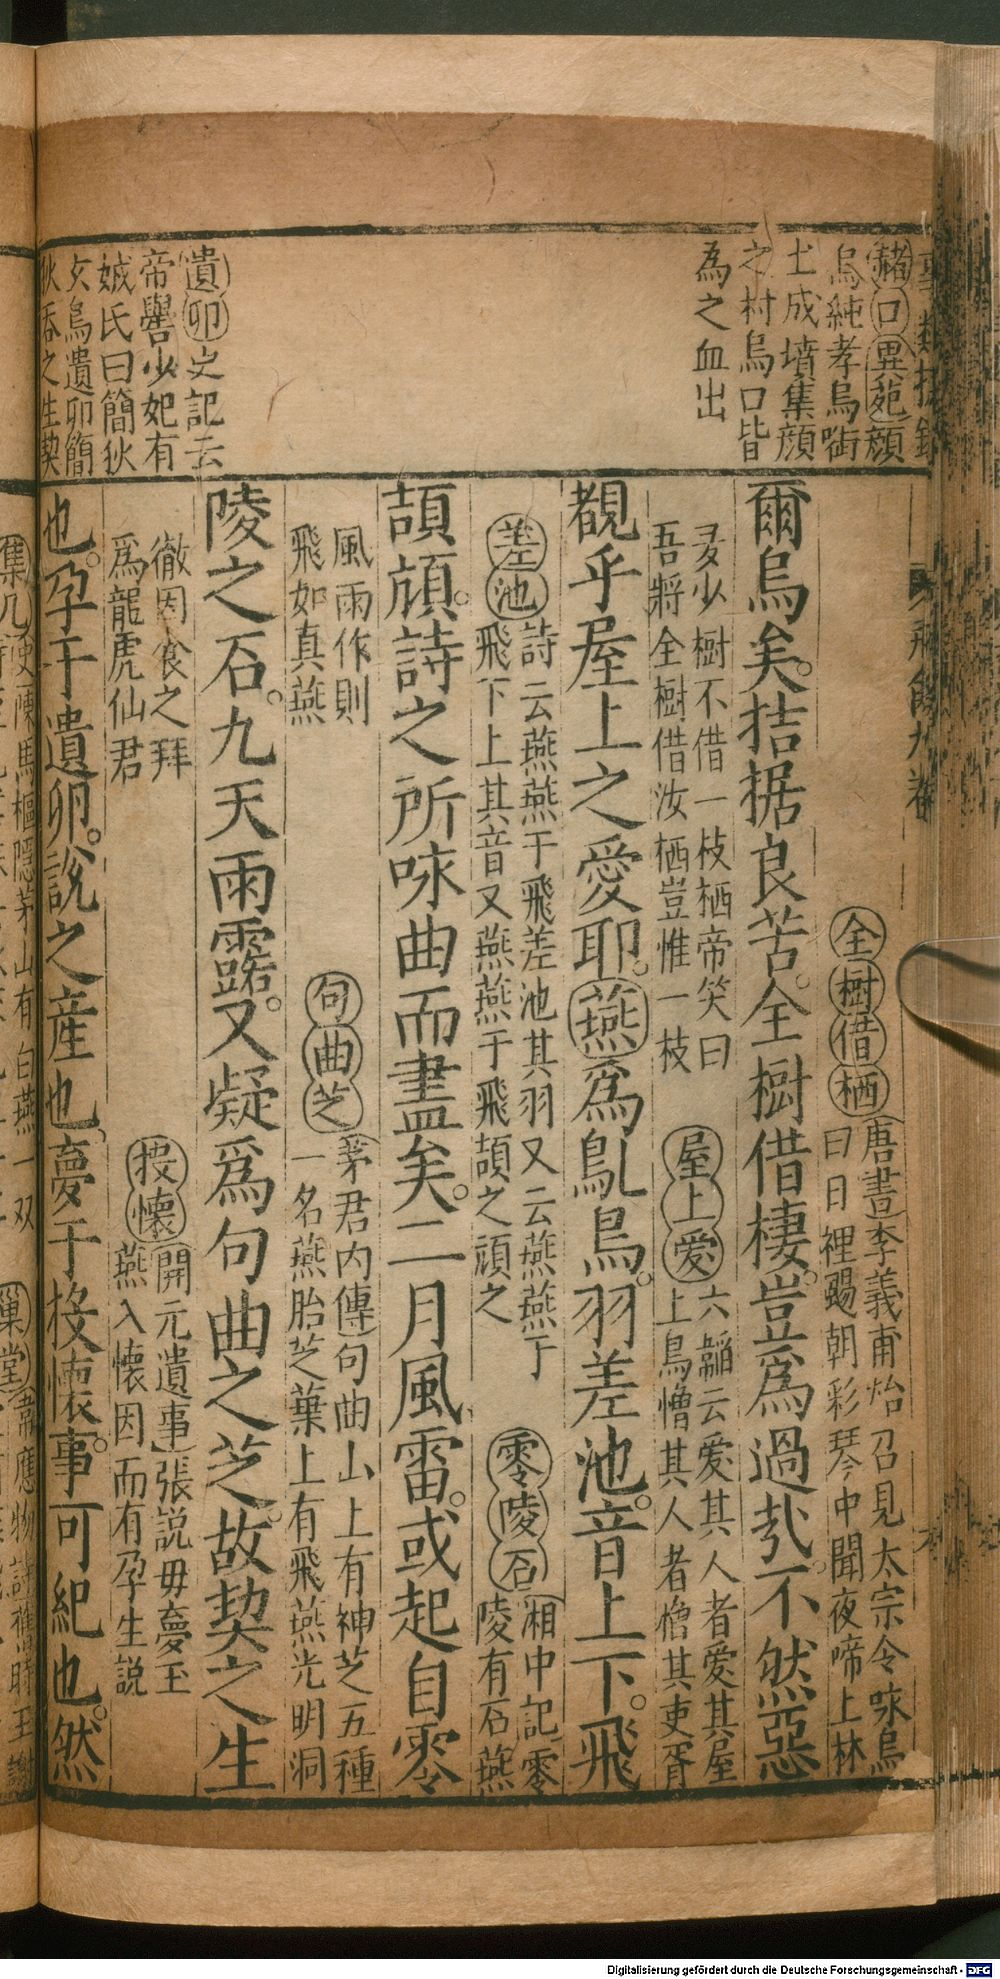 赭口異苑顔
烏純孝烏啣
土成墳集顔
之村烏口皆
為之血出
遺卵史記云
帝嚳少妃有
娀氏曰簡狄
鳥遺卵簡
狄吞之生契
全樹借栖
唐書李義甫始召見太宗令咏烏
曰日裡颺朝彩琴中聞夜啼上林
爾烏矣拮据良苦全樹借棲豈爲過哉不然惡
多少樹不借一枝栖帝笑曰
吾將全樹借汝栖豈惟一枝
屋上愛
六韜云愛其人者愛其屋
上烏憎其人者憎其吏胥
覩乎屋上之愛耶燕爲鳦鳥羽差池音上下飛
差池
詩云燕燕于飛差池其羽又云燕燕于
飛下上其音又燕燕于飛頡之頏之
零陵石
湘中記零
陵有石燕
頡頏詩之所咏曲而盡矣二月風雷或起自零
風雨作則
飛如真燕
句曲芝
茅君内傳句曲山上有神芝五種
一名燕胎芝葉上有飛燕光明洞
陵之石九天雨露又疑爲句曲之芝故契之生
徹因食之拜
爲龍虎仙君
投懷
開元遺事張説毋夢玉
燕入懷因而有孕生説
也孕于遺卵説之産也夢于投懷事可紀也然
馬樞隱茅山有白燕一双
巢堂
韋應物詩舊時王謝
Digitalisierung gefördert durch die Deutsche Forschungsgemeinschaft - DFG